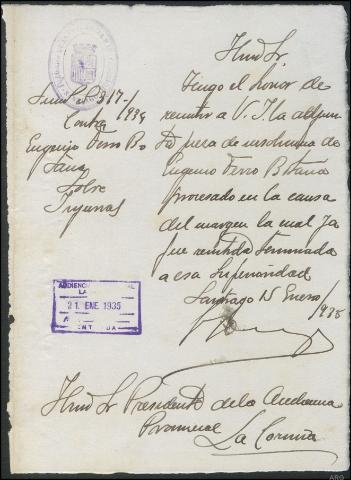 Ilmo Sr.
Tengo el honor de
remitir a V. I. la adjun
ta pieza de insolvencia de
Eugenio Ferro Botana
procesado en la causa
del margen la cual ya
fue remitida terminada
a esa Superioridad
Santiago 15 Enero
1935
Sum
317-/
1934
Contra
Eugenio Ferro Bo-
tana
Sobre
Injurias
AUDIENCIA
LA
21 ENE 1935
ENT DA
Ilmo Sr Presidente de la Audiencia
Provincial
La Coruña
ARG